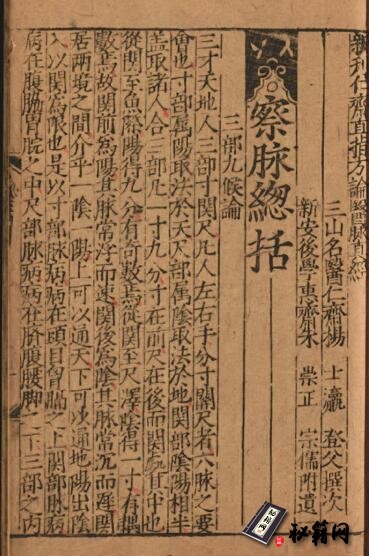 新刊仁齋直指方論醫脉真經
三山名醫仁齋楊 士瀛 登父撰次
新安後學惠齋朱 崇正 宗儒附遺
察脉總括
三部九候論
三才天地人三部寸関尺凡人左右手分寸關尺有六脉之要
會也寸部属陽取法於天尺部属陰取法於地関部陰陽相半
盖取諸人合三部凡一寸九分寸在前尺在後而関其中央
從関至魚際陽得九分有奇數焉從関至尺澤陰得一寸有偶
數焉故関前為陽其脉常浮而速関後為陰其脉常沉而遲関
居两境之間介乎一陰一陽上可以通天下可以通地陽出陰
入以関為限也是以寸部脉病病在頭目胷膈之上関部脉病
病在腹脇胃脘之中尺部脉病病在臍腹腰脚之下三部之内
秘籍网